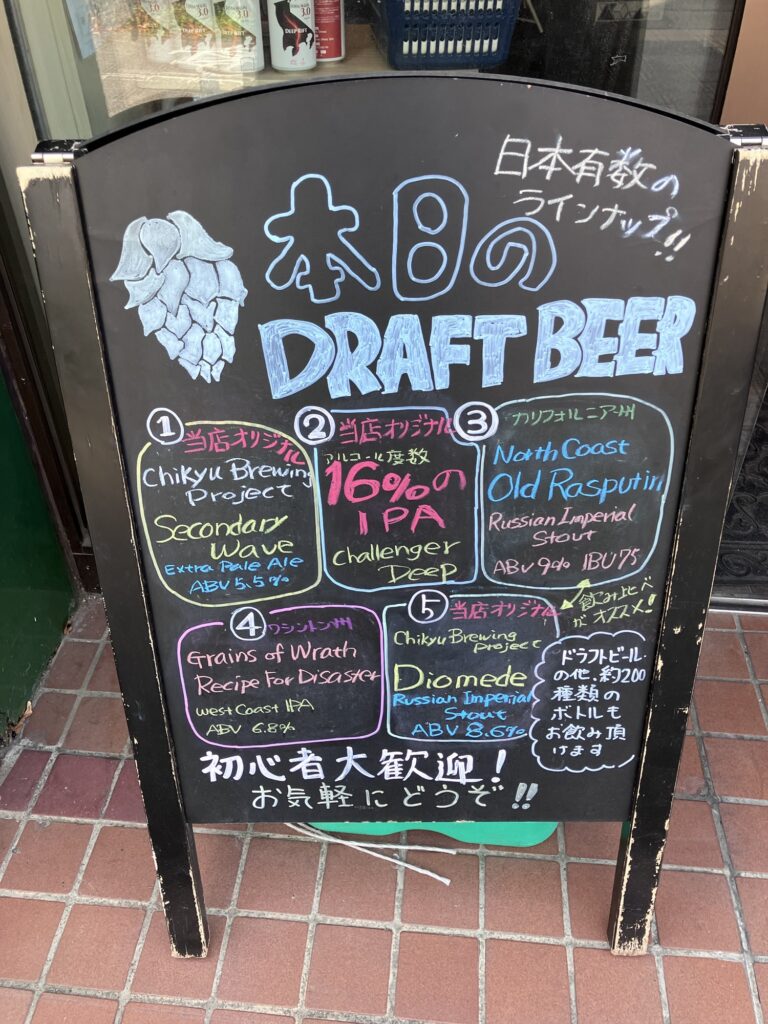 3.0
3.0
DEEP RIFT
日本有数の
ラインナップ!!
本日の
DRAFT BEER
①
当店オリジナル
Chikyu Brewing
Project
Secondary
Wave
Extra Pale Ale
ABV 5.5%
②
当店オリジナル
アルコール度数
16%の
IPA
Challenger
Deep
③
カリフォルニア州
North Coast
Old Rasputin
Russian Imperial
Stout
ABV 9% IBU 75
④
ワシントン州
Grains of Wrath
Recipe For Disaster
West Coast IPA
ABV 6.8%
⑤
当店オリジナル
Chikyu Brewing
Project
Diomede
Russian Imperial
Stout
ABV 8.6%
飲み比べ
がオススメ!
ドラフトビール
の他、約200
種類の
ボトルも
お飲み頂
けます
初心者大歓迎!
お気軽にどうぞ!!